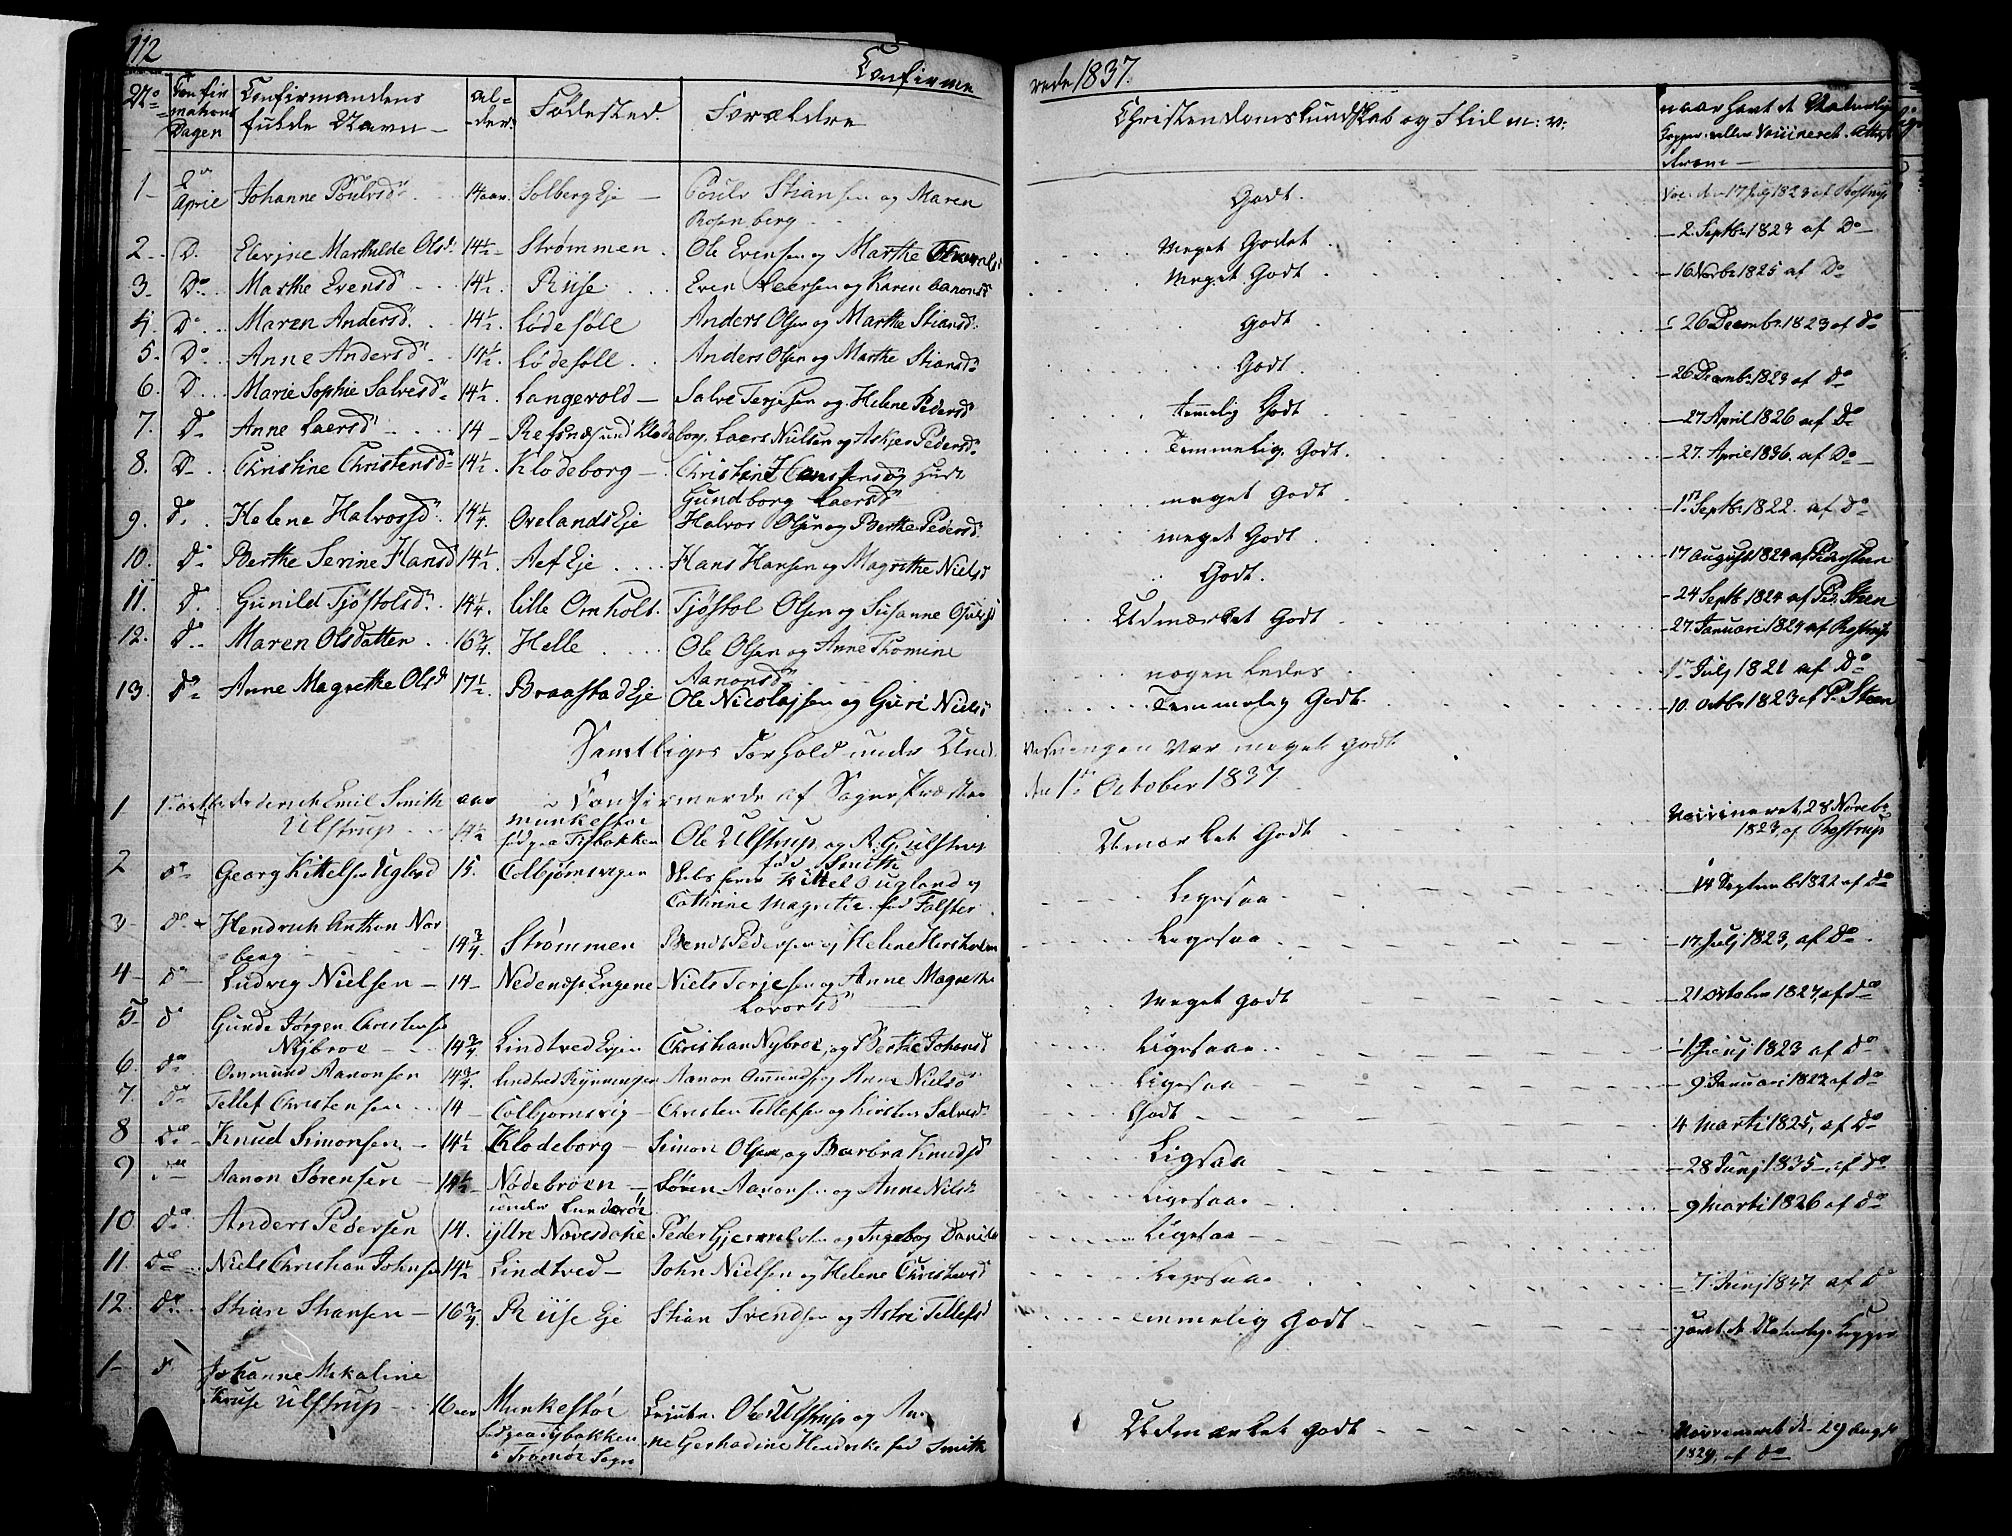 112
Confirme
rede 1837.
No Confirmations Dagen Confirmandens fulde Navn Alder Fødested Forældre Christendomskundskab og Flid m: v: naar havt de Naturlige Kopper eller Vaccineret
1 April Johanne Poulsd 14 aar Solberg Eje Poulv Stiansen og Maren Rosenberg Godt. Vac. den 17 1823 af Rostrup
2 Do Marthilde Olsd 14½ Strømmen Ole Evensen og Marthe Meget Godt 2 Septbr 1823 af Do
3 Do Marthe Evensd 14½ Riise Even Leersen og Karen Aanonsd Meget Godt 16 Novbr 1825 af Do
4 Do Maren Andersd 14½ Lødesøll Anders Olsen og Marthe Stiansd Godt 26 Decembr 1823 af Do
5 Do Anne Andersd 14½ Lødesøll Anders Olsen og Marthe Stiansd Godt 26 Decembr 1823 af Do
6 Do Marie Sophie Salvesd 14½ Langevold Salve Terjesen og Helene Pedersd temmelig Godt 27 April 1826 af Do
7 Do Anne Laersd 14 Refsnæs under Klodeborg Laers Nielsen og Askjer Pedersd Temmelig Godt 27 April 1836 af Do
8 Do Christine Christensd 14½ Klodeborg Christen Hansen og Hust Gundborg Laersd meget Godt 1 Septbr 1822 af Do
9 Do Helene Halvorsd 14¼ Ovelands Eje Halvor Olsen og Berthe Pedersd meget Godt 17 August 1824 af P. Steen
10 Do Berthe Serine Hansd 14½ Aef Eje Hans Hansen og Magrethe Nielsd Godt. 24 Septbr 1824 af Ped Steen
11 Do Gunild Tjøstolsd 14¼ lille Omholt Tjøstol Olsen og Susanne Udmærket Godt 27 Januari 1824 af Rostrup
12 Do Maren Olsdatter 16¾ Helle Ole Olsen og Anne Thomine Aanonsd nogenledes 1 July 1821 af Do
13 Do Anne Magrethe Olsd 17½ Braastad Eje Ole Nicolajsen og Guri Nielsd Temmelig Godt. 10 Octbr 1823 af P. Steen
Samtliges Forhold under Underviisningen var meget godt
Confirmerede af Sognepræsten den 1 October 1837.
1 1 Octbr Frederich Emil Smith Ulstrup aar 14½ Munkestør fød paa Tybakken Ole Ulstrup og A. G. Ulstrup fød Smith Udmærket Godt Vaccineret 28 Novebr 1823 af Rostrup
2 Do Georg Kittelsen Ugland 15 Colbjørnsvigen Kittel Ugland og Cathrine Magrethe fød Falster Ligesaa 14 September 1822 af Do
3 Do Hendrich Anthon Norberg 14¾ Strømmen Bendt Pedersen og Helene Ligesaa 17 Julj 1823 af Do
4 Do Ludvig Nielsen 14 Nedenæs Engene Niels Terjesen og Anne Magrethe Meget godt 21 October 1824 af Do
5 Do Gunde Jørgen Christensen Nybroe 14¾ Lindtved Ejen Christian Nybroe og Berthe Johansd Ligesaa 1 Junj 1823 af Do
6 Do Ommund Aanonsen 14¾ Lindtved Aanon Ommunds og Anne Nielsd Ligesaa 9 Januari 1823 af Do
7 Do Tellef Christensen 14 Colbjørnsvig Christen Tellefsen og Kirsten Salvesd Godt 4 Marti 1825 af Do
8 Do Knud Simonsen 14½ Klodeborg Simon Olsen og Barbra Knudsd Ligesaa 28 Junj 1835 af Do
9 Do Aanon Sørensen 14½ Nødebroen under Lunderø Søren Aanonsen og Anne Nilsd Ligesaa 9 Marti 1826 af Do
10 Do Anders Pedersen 14 ytre Peder og Ingeborg Ligesaa
11 Do Niels Christian Johnsen 14½ Lindtved John Nielsen og Helene Christensd Ligesaa 7 Junj 1837 af Do
12 Do Stian Stiansen 16¾ Riise Eje Stian Svendsen og Astri Tellefsd Temmelig Godt havt de Naturlige Kopper
1 Do Johanne Mikaline Kruse Ulstrup 16 aar Munkestør fød paa Tybakken i Tromøe Sogn Ole Ulstrup og Anne Gerhadine Hendrike fød Smith Udmærket Godt Vaccineret d 29 August 1824 af Do